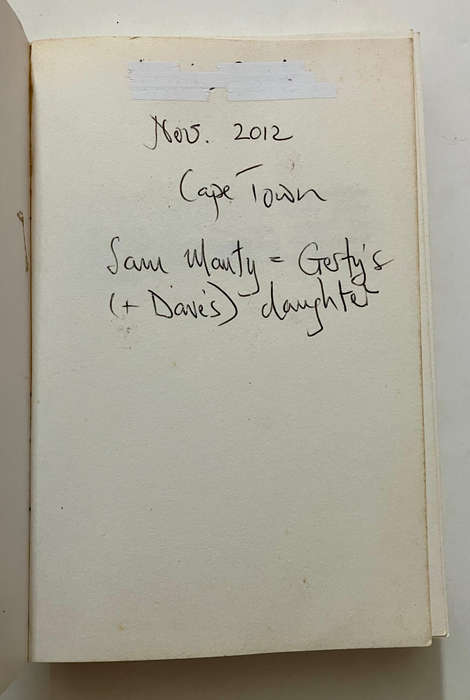 Nov. 2012
Cape Town
Sam Manty = Gerty's
(+ Dave's) daughter